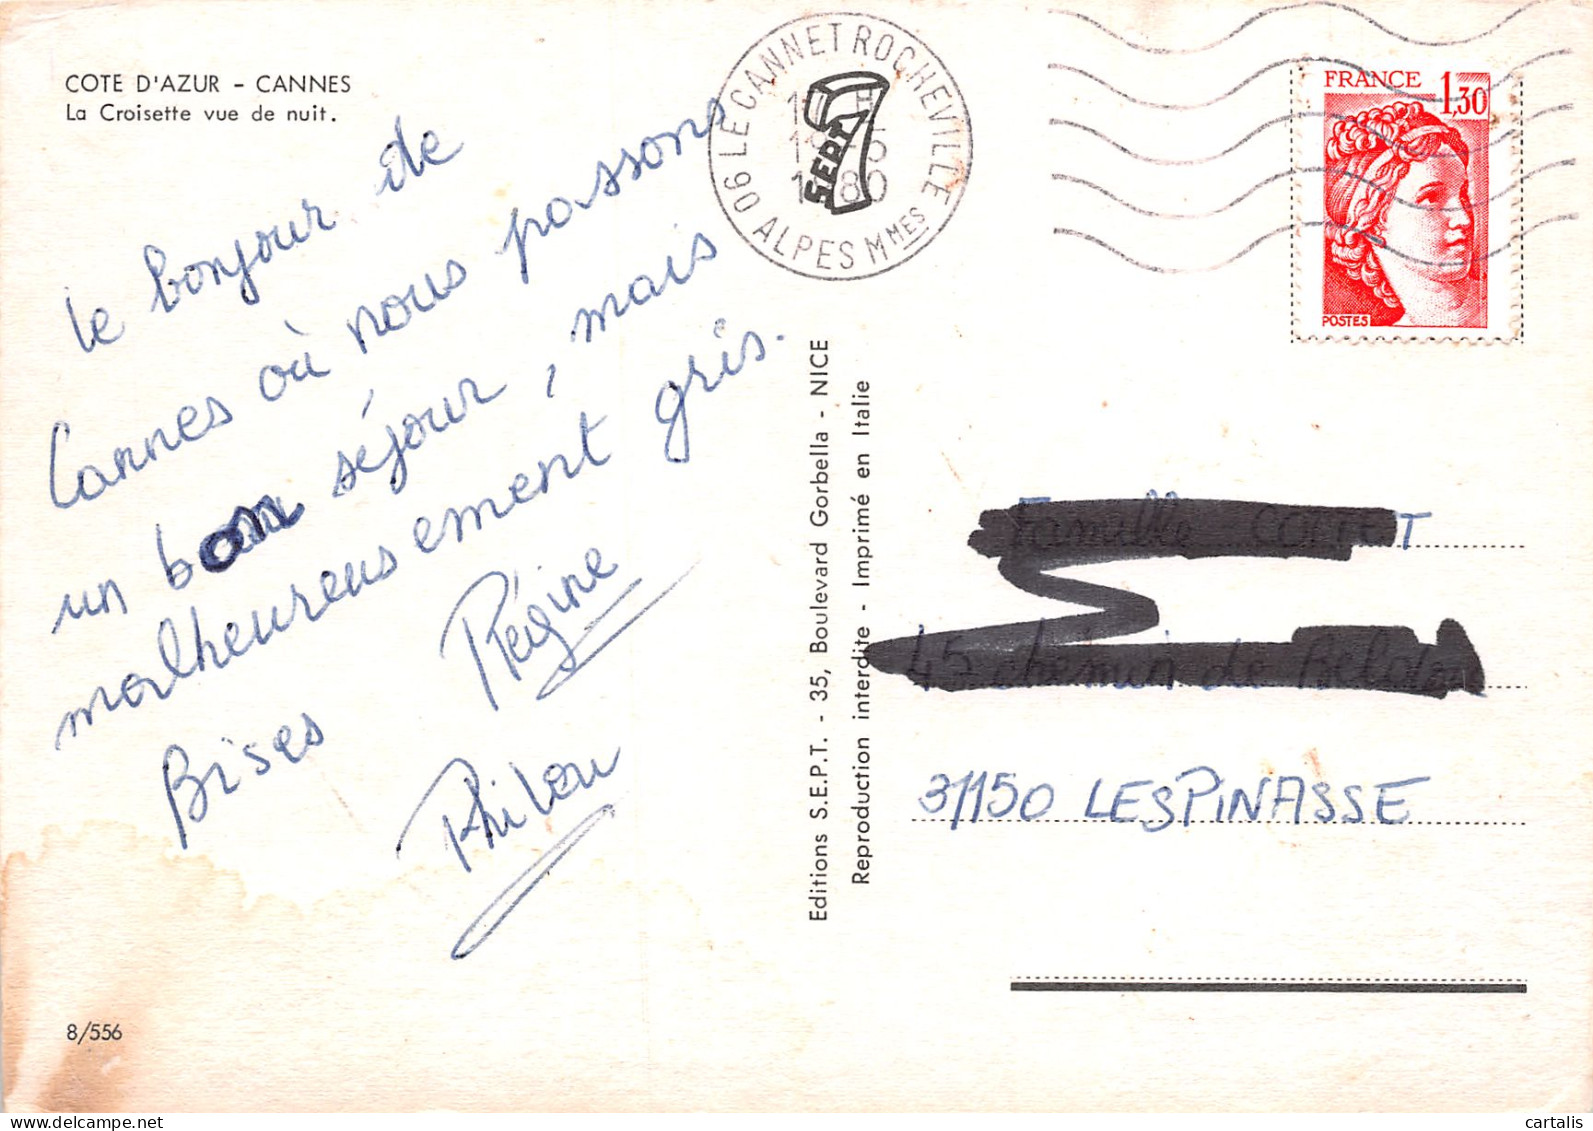 COTE D'AZUR - CANNES
La Croisette vue de nuit.
le bonjour de
Cannes où nous passons
un bon séjour, mais
malheureusement gris.
Bises Régine
Philou
8/556
LE CANNET ROCHEVILLE
1980
06 ALPES MMES
SEPT
FRANCE 1,30
POSTES
Editions S.E.P.T. - 35, Boulevard Gorbella - NICE
Reproduction interdite - Imprimé en Italie
Famille
chemin de
31150 LESPINASSE
cartalis